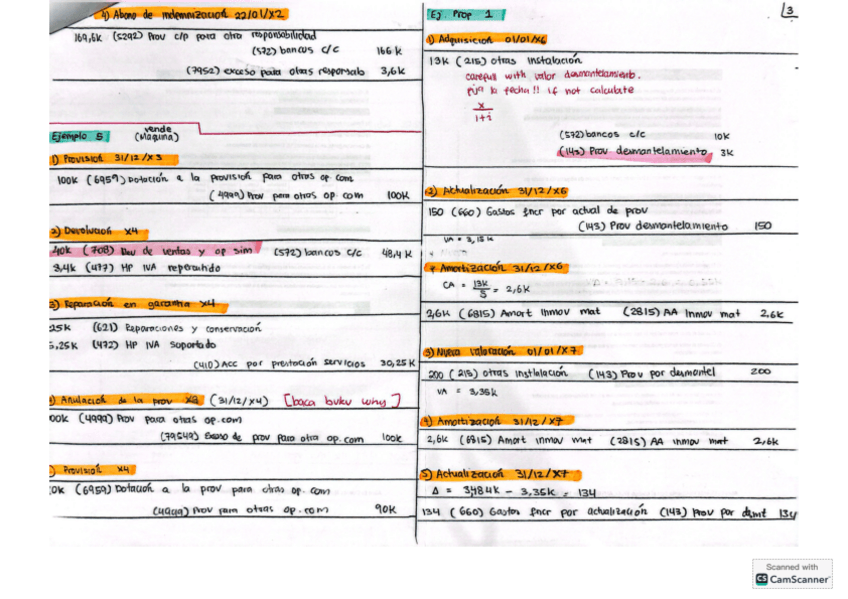 4) Abono de indemnización 22/01/X2
169,6K (5292) Prov c/p para otra responsabilidad
(572) bancos c/c 166 K
(7952) exceso para otras responsab 3,6K
Ejemplo 5 vende (Maquina)
1) Provisión 31/12/X3
100K (6959) Dotación a la provisión para otros op com
(4999) Prov para otras op. com 100K
2) Devolución X4
40K (708) Dev de ventas y op sim (572) bancos c/c 48,4 K
8,4K (477) HP IVA repercutido
3) Reparación en garantía X4
25K (621) Reparaciones y conservación
5,25K (472) HP IVA soportado
(410) Acc por prestación servicios 30,25K
) Anulación de la prov X3 (31/12/X4) [baca buku why]
00K (4999) Prov para otras op.com
(79549) Exceso de prov para otra op.com 100K
) Provisión X4
0K (6959) Dotación a la prov para otras op. com
(4999) Prov para otras op.com 90K
Ej. Prop 1
3
1) Adquisición 01/01/X6
13K (215) otras instalación
carefull with valor desmantelamient.
fecha!! if not calculate
x
1+i
(572) bancos c/c 10K
(143) Prov desmantelamiento 3K
2) Actualización 31/12/X6
150 (660) Gastos fncr por actual de prov
(143) Prov desmantelamiento 150
VA = 3,15K
Amortización 31/12/X6
CA = 13K/5 = 2,6K
2,6K (6815) Amort Inmov mat (2815) AA Inmov mat 2,6K
3) Nueva valoración 01/01/X7
200 (215) otras instalación (143) Prov por desmantel 200
VA = 3,35K
4) Amortización 31/12/X7
2,6K (6815) Amort inmov mat (2815) AA inmov mat 2,6K
5) Actualización 31/12/X7
Δ = 3,484K - 3,35K = 134
134 (660) Gastos fncr por actualización (143) Prov por dsmt 134
Scanned with
CS CamScanner